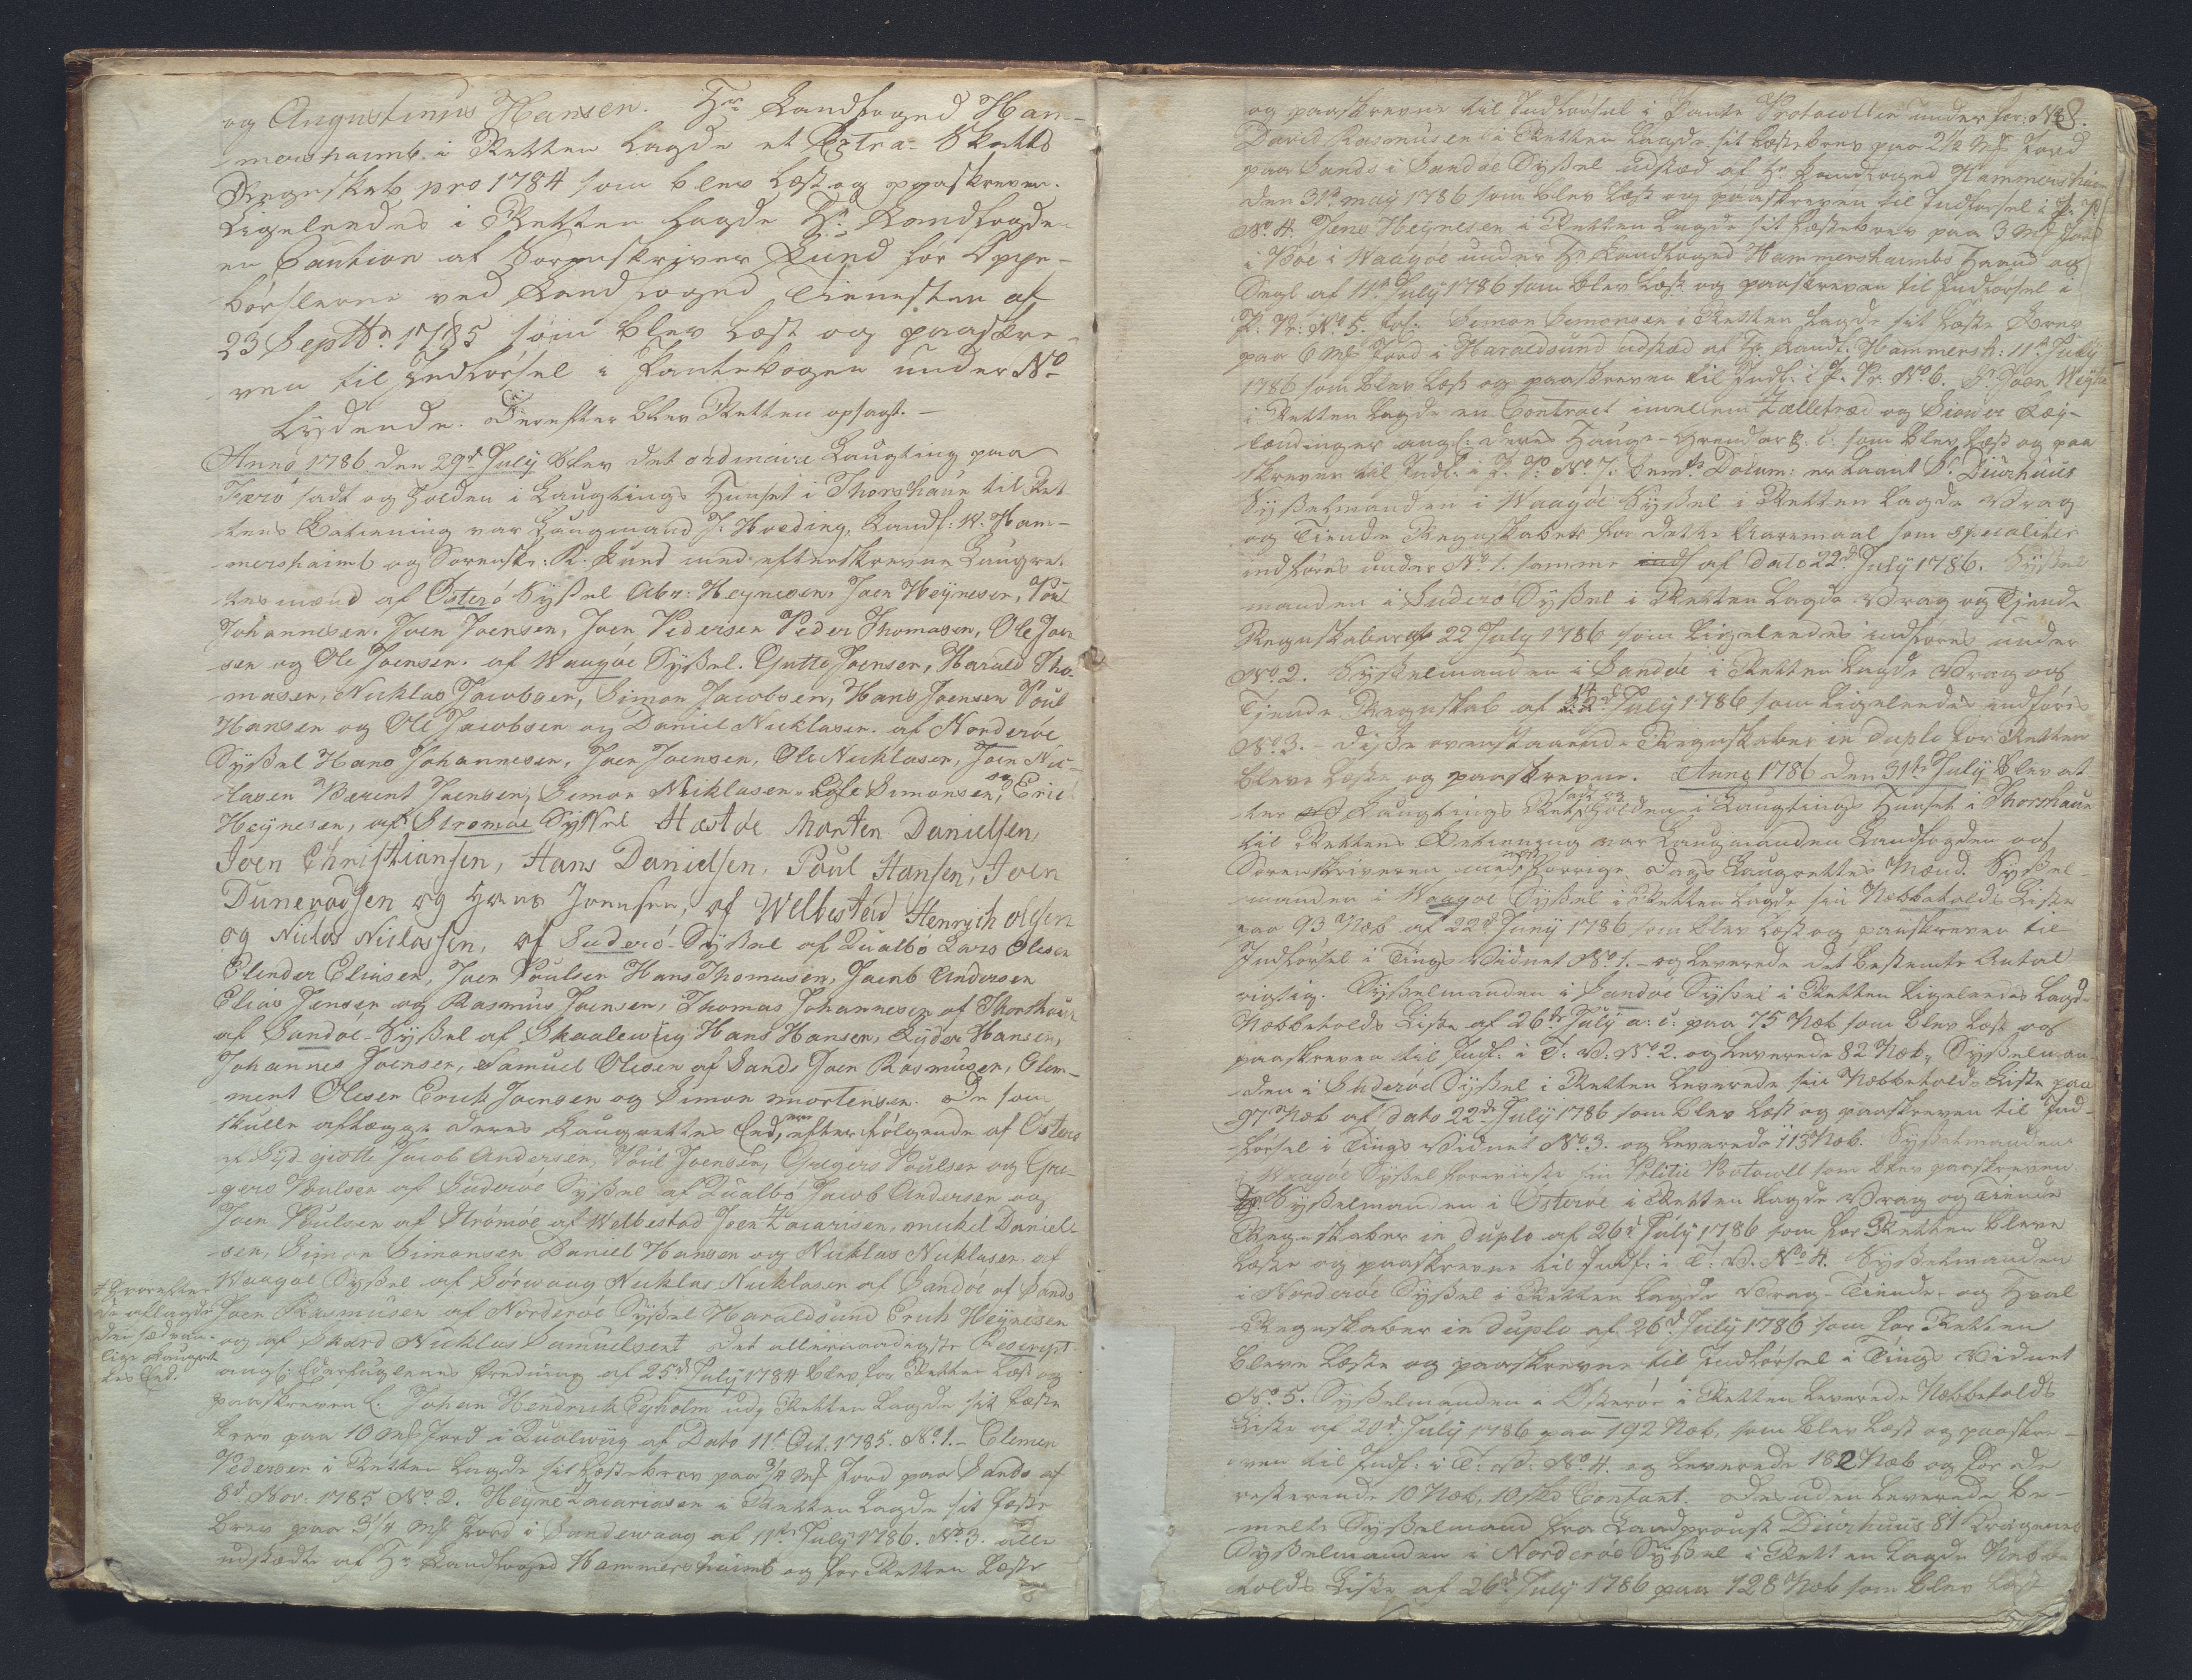 og Augustinus Hansen. Hr. Landfoged Ham-
mershaimb i Retten lagde et Extra Skatts
Regnskab pro 1784 som blev læst og paaskreven.
Ligeledes i Retten lagde Hr. Landfogden
en Caution af Sorenskriver Lund for Oppe-
børslerne ved Landfoged Tienesten af
23 Septbr 1785 som blev læst og paaskre-
ven til Indførsel i Pantebogen under No
lydende. Derefter blev Retten opsagt. -
Anno 1786 den 29de July blev det ordinaire Laugting paa
Færø sadt og holden i Laugtings Huuset i Thorshaun til Ret-
tens Betiening var Laugmand J. Hveding, Landf: W. Ham-
mershaimb og Sorenskr: R. Lund med efterskrevne Laugret-
tes mænd af Østerø Syßel Abr: Heynesen, Joen Heynesen, Poul
Johannesen, Joen Joensen, Joen Pedersen Peder Thomasen, Ole Joen-
sen og Ole Joensen. af Waagøe Syßel. Gutte Joensen, Harald Tho-
masen, Nicklas Jacobsen, Simon Jacobsen, Hans Joensen Poul
Hansen og Ole Jacobsen og Daniel Nicklasen. af Norderøe
Syßel Hans Johannesen, Joen Joensen, Ole Nicklasen, Joen Nic-
lasen Berent Joensen, Simon Nicklasen, Ole Simonsen, og Eric
Heynesen, af Strømøe Syssel Hæstøe Morten Danielsen,
Joen Christiansen, Hans Danielsen, Poul Hansen, Joen
og Hans Joensen, af Welbestad Henrich olesen
og Niclas Niclassen, af Suderø Syßel af Qualbø Lars Olesen
Elinder Eliasen, Joen Poulsen Hans Thomasen, Jacob Andersen
Elias Jensen og Rasmus Joensen, Thomas Johannesen af Thorshaun
af Sandøe Syßel af Skaalewiig Hans Hansen, Hansen,
Johannes Joensen, Samuel Olesen af Sands Joen Rasmusen, Clem-
ment Olesen Erich Joensen og Simon mortensen. De som
skulle aflægge deres Laugrettes Eed, ere efterfølgende af Østerø
af Syd giøtte Jacob Andersen, Poul Joensen, Gregers Poulsen og Gre-
gers Poulsen af Suderøe Syßel af Qualbø Jacob Andersen og
Joen Poulsen af Strømøe af Welbestad Joen Zacarisen, mickel Daniel-
sen, Simon Simonsen Daniel Hansen og Nicklas Nicklasen. af
Waagøe Syßel af Sørwaag Nicklas Nicklasen af Sandøe af Sands
Joen Rasmusen af Norderøe Syßel Haraldsund Erich Heynesen
og af Skard Nicklas Samuelsen † Det allernaadigste Rescript
† Hvorefter
de aflagde
den sædvan-
lige Laugret-
tes Eed.
ang: fredning af 25de July 1784 blev for Retten læst og
paaskreven. Johan Hendrick Eyholm udi Retten lagde sit fæste
brev paa 10 mk Jord i Qualwiig af Dato 11t Oct. 1785. No. 1. - Clemen
Pedersen i Retten lagde sit fæstebrev paa 3/4 mk Jord paa Sands af
8de Nov: 1785 No. 2. Heyne Zacariasen i Retten lagde sit fæste
brev paa 3/4 mk Jord i Sandewaag af 11te July 1786. No. 3. alle
udstædte af Hr. Landfoged Hammershaimb og for Retten læste
8.
og paaskrevne til Indførsel i Pante Protocollen under
David Rasmusen i Retten lagde sit fæstebrev paa 2 1/2 mk Jord
paa Sands i Sandøe Syßel udstæd af Hr. Landfoged Hammershaimb
den 31te may 1786 som blev læst og paaskreven til Indførsel i P. P.
No. 4. Jens Heynesen i Retten lagde sit fæstebrev paa 3 mk Jord
i Bøe i Waagøe under Hr. Landfoged Hammershaimbs Haand og
Segl af 11te July 1786 som blev læst og paaskreven til Indførsel i
P. Pr: No. 5. Simon Simonsen i Retten lagde sit fæste Brev
paa 6 mk Jord i Haraldsund udstæd af Hr. Landf: Hammersh: 11te July
1786 som blev læst og paaskreven til Indf: i P. Pr. No. 6. Sr. Joen
i Retten lagde en Contract imellem og
ang: deres Hauge- som blev læst og paa
skreven til Indf: i P. P. No. 7. Sr. Diurhuus
Syßelmanden i Waagøe Syßel i Retten lagde Vrag
og Tiende Regnskaber for dette Aaremaal som specaliter
indføres under No. 1. samme af dato 22de July 1786. Syßel-
manden i Suderø Syßel i Retten lagde Vrag og Tiende
Regnskaber af 22 July 1786 som ligeledes indføres under
No. 2. Syßelmanden i Sandøe i Retten lagde Vrag og
Tiende Regnskab af 14de July 1786 som ligeledes indføres
No. 3. - Disse ovenstaaende Regnskaber in duplo for Retten
bleve læste og paaskrevne. Anno 1786 den 31te July blev at-
ter Laugtings Retten sadt og holden i Laugtings Huuset i Thorshaun
til Rettens Betiening var Laugmanden Landfogden og
Sorenskriveren med forrige Dags Laugrettes Mænd. Syßel-
manden i Waagøe Syßel i Retten lagde sin Næbbetolds Liste
paa 93 Næb af 22de Juny 1786 som blev læst og paaskreven til
Indførsel i Tings Vidnet No. 1. - og leverede det bestemte Antal
rigtig. Syßelmanden i Sandøe Syßel i Retten ligeledes lagde
Næbbetolds Liste af 26de July a: c: paa 75 Næb som blev læst og
paaskreven til Indf: i T: V: No. 2. og leverede 82 Næb, Syßelman-
den i Suderøe Syßel i Retten leverede sin Næbbetolds Liste paa
97 Næb af dato 22de July 1786 som blev læst og paaskreven til Ind-
førsel i Tings Vidnet No. 3. og leverede 113 Næb. Syßelmanden
i Waagøe Syßel foreviiste sin Politie Protocoll som blev paaskreven
Syßelmanden i Østerøe i Retten lagde Vrag og Tiende
Regnskaber in duplo af 26de July 1786 som for Retten bleve
læste og paaskrevne til Indf: i T: V. No. 4. Syßelmanden
i Norderøe Syßel i Retten lagde Vrag- Tiende- og Hval
Regnskaber in duplo af 26de July 1786 som for Retten
bleve læste og paaskrevne til Indførsel i Tings Vidnet
No. 5. Syßelmanden i Østerøe i Retten leverede Næbbetolds
Liste af 20de July 1786 paa 192 Næb, som blev læst og paaskre-
ven til Indf: i T: V: No. 4. og leverede 182 Næb og for de
resterende 10 Næb, 10 sk Contant. Desuden leverede be-
melte Syßelmand fra Landproust Diurhuus 81
Syßelmanden i Norderøe Syßel i Retten lagde Næbbe
tolds Liste af 26de July 1786 paa 128 Næb som blev læst